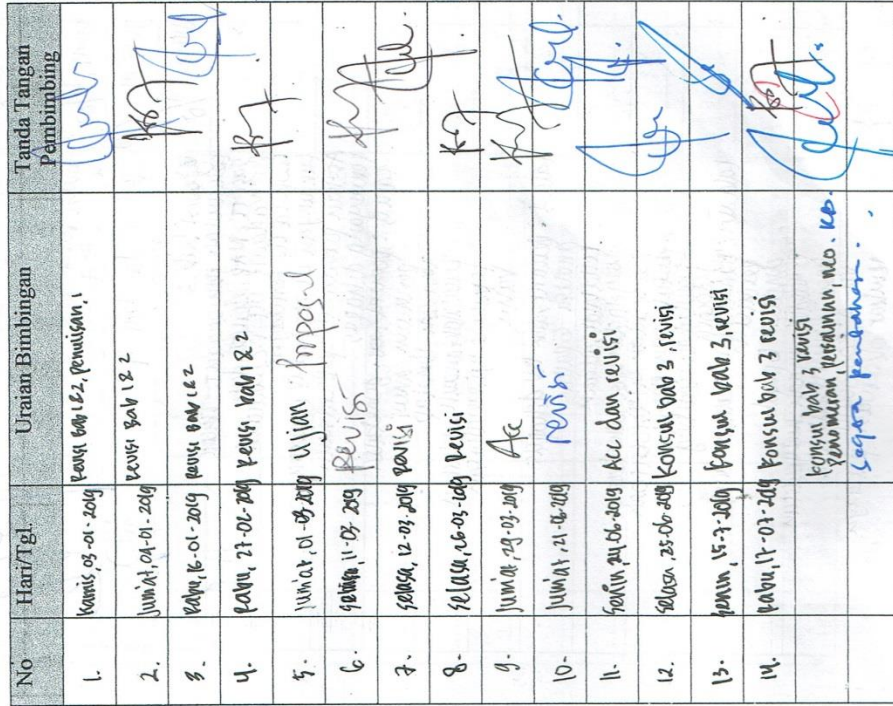 No Hari/Tgl. Uraian Bimbingan Tanda Tangan Pembimbing
1. Kamis, 03-01-2019 Revisi Bab 1&2, penulisan,
2. Jum'at, 04-01-2019 Revisi Bab 1&2
3. Rabu, 16-01-2019 Revisi Bab 1&2
4. Rabu, 27-02-2019 Revisi bab 1&2
5. Jum'at, 01-03-2019 Ujian Proposal
6. 11-03-2019 Revisi
7. Selasa, 12-03-2019 Revisi
8. Selasa, 26-03-2019 Revisi
9. Jum'at, 29-03-2019 Acc
10. Jum'at, 21-06-2019 revisi
11. Senin, 24-06-2019 Acc dan revisi
12. Selasa, 25-06-2019 Konsul bab 3, revisi
13. Senin, 15-7-2019 Konsul bab 3, revisi
14. Rabu, 17-07-2019 Konsul bab 3 revisi
Konsul bab 3 revisi
Penomeran,
segera